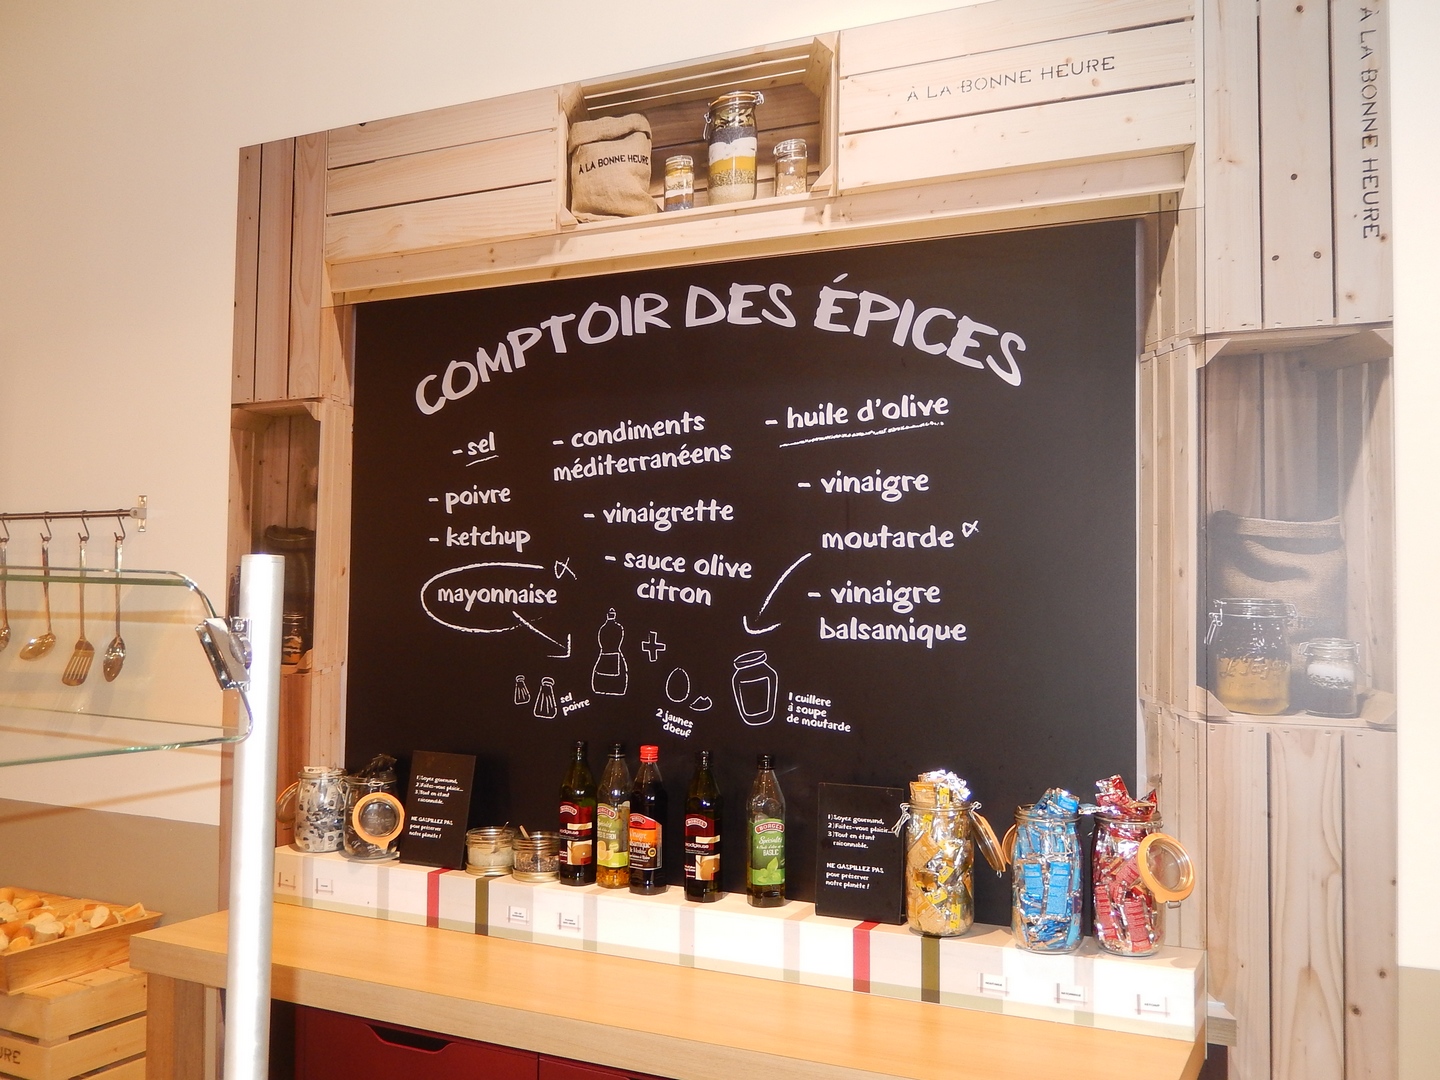 À LA BONNE HEURE
À LA BONNE HEURE
À LA BONNE HEURE
COMPTOIR DES ÉPICES
- sel
- poivre
- ketchup
mayonnaise
- condiments
méditerranéens
- vinaigrette
- sauce olive
citron
- huile d'olive
- vinaigre
moutarde
- vinaigre
balsamique
sel
poivre
+
2 jaunes
d'oeuf
1 cuillere
à soupe
de moutarde
1) Soyez gourmand,
2) Faites-vous plaisir...
3) Tout en étant
raisonnable.
NE GASPILLEZ PAS
pour préserver
notre planète !
BORGES
BORGES
BORGES
BORGES
BASILIC
1) Soyez gourmand,
2) Faites-vous plaisir...
3) Tout en étant
raisonnable.
NE GASPILLEZ PAS
pour préserver
notre planète !